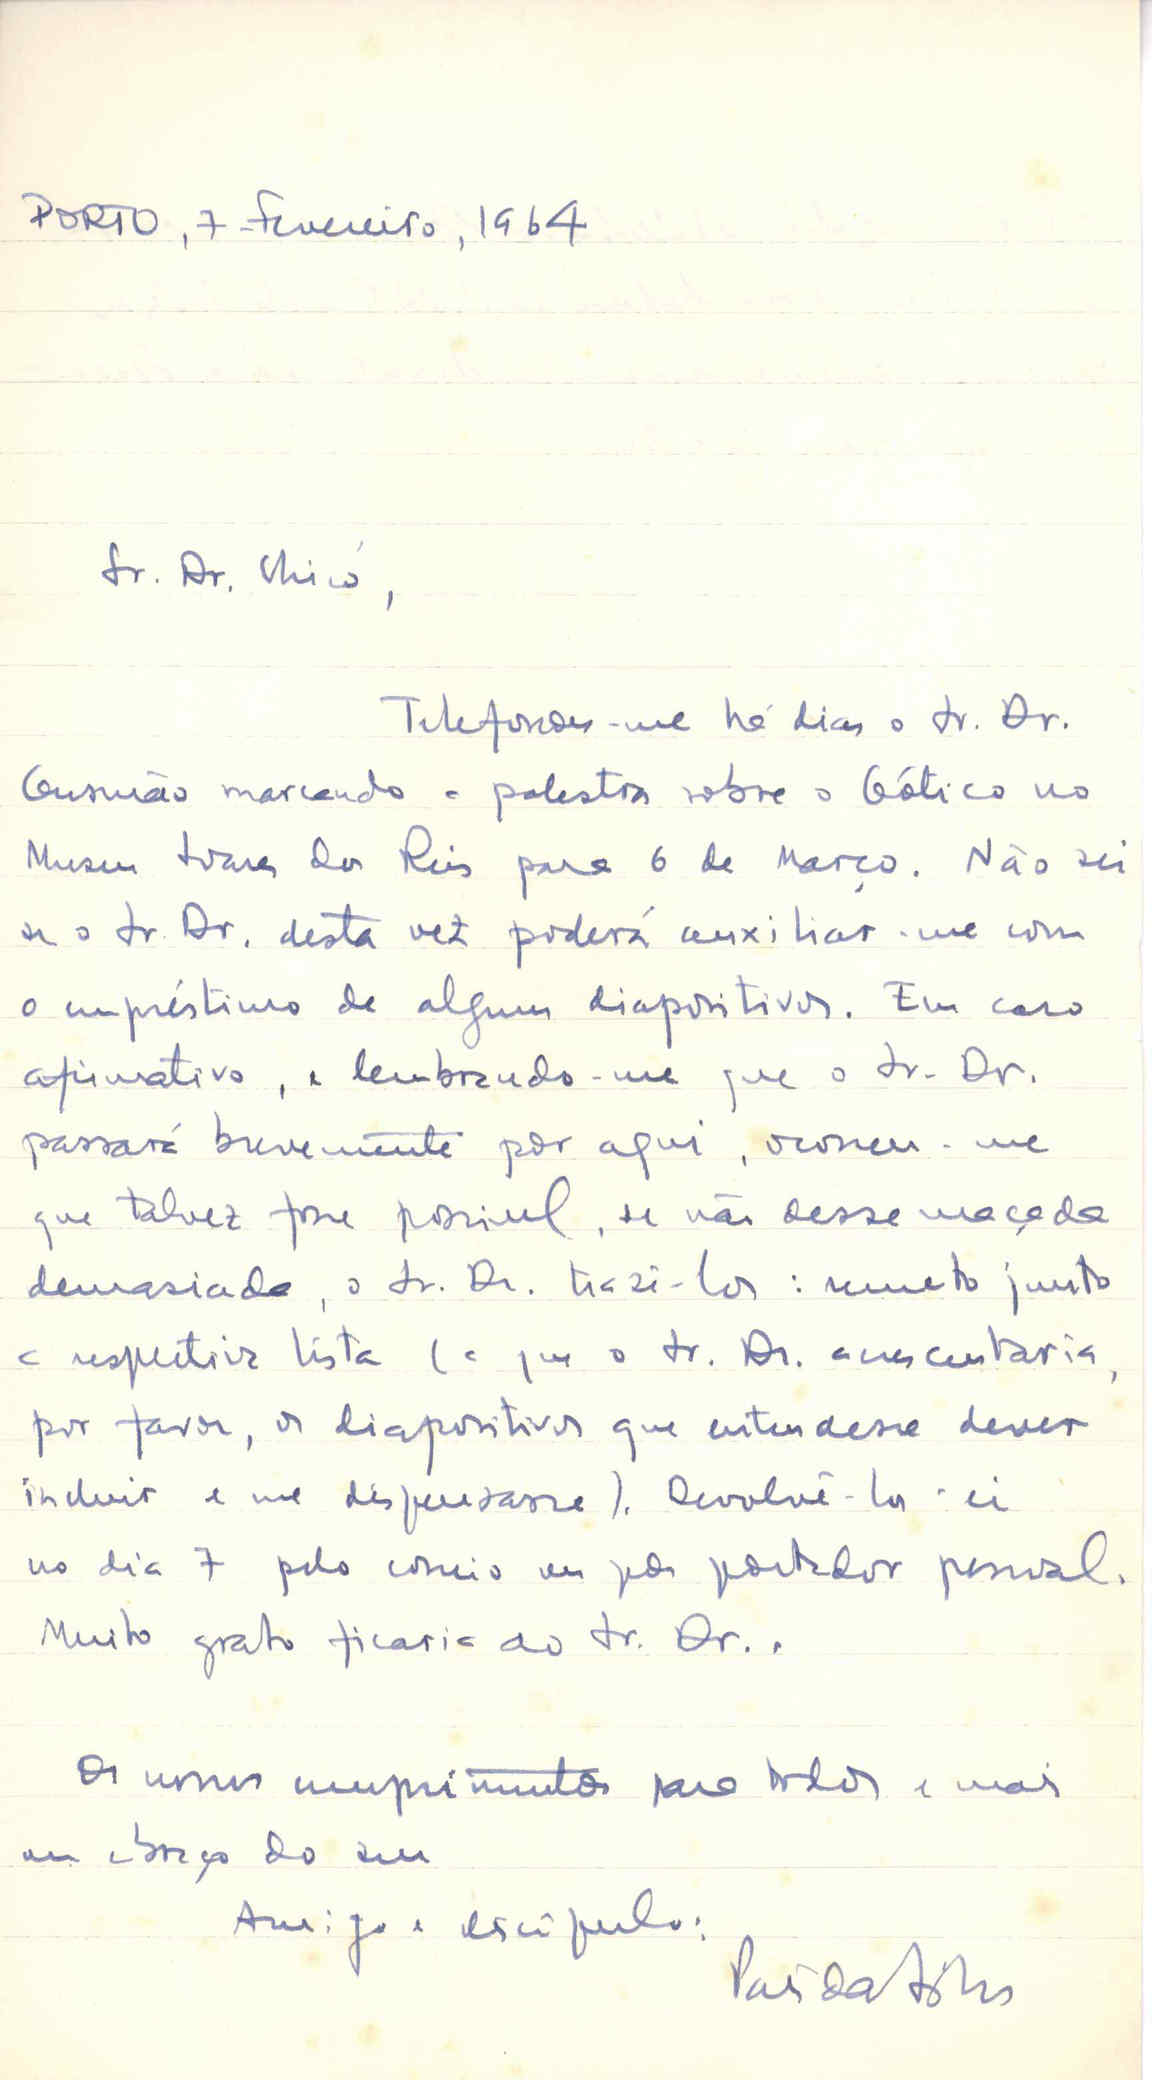 PORTO, 7-Fevereiro, 1964
Sr. Dr. Chicó,
Telefonou-me há dias o Sr. Dr.
Gusmão marcando a palestra sobre o Gótico no
Museu Soares dos Reis para 6 de Março. Não sei
se o Sr. Dr. desta vez poderá auxiliar-me com
o empréstimo de alguns diapositivos. Em caso
afirmativo, e lembrando-me que o Sr. Dr.
passará brevemente por aqui, ocorreu-me
que talvez fosse possível, se não desse maçada
demasiada, o Sr. Dr. trazê-los: remeto junto
a respectiva lista (a que o Sr. Dr. acrescentaria,
por favor, os diapositivos que entendesse dever
incluir e me dispensasse). Devolvê-los-ei
no dia 7 pelo correio ou por portador pessoal.
Muito grato ficaria ao Sr. Dr..
Os nossos cumprimentos para todos e mais
um abraço do seu
Amigo e discípulo:
Pais da Silva